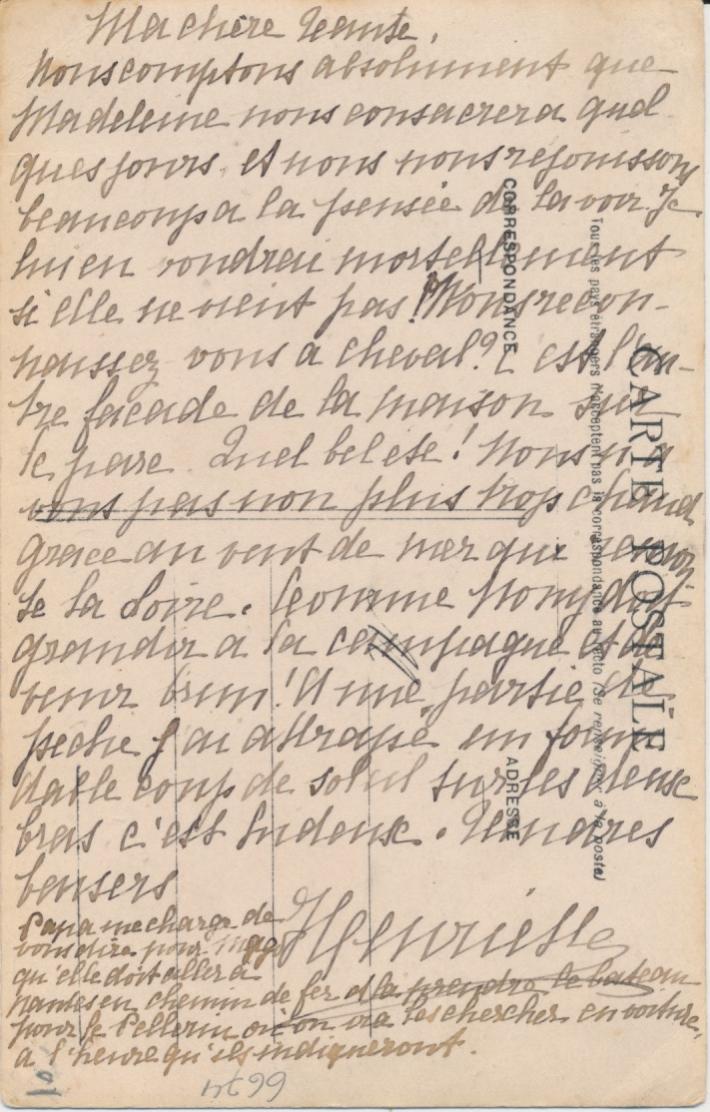 Ma chère Tante,
Nous comptons absolument que
Madeleine nous consacrera quel
ques jours et nous nous rejouissons
beaucoup a la pensée de la voir. Je
lui en voudrai mortellement
si elle ne vient pas! Nous recon-
naissez vous a cheval? c'est l'au-
tre facade de la maison sur
le parc. Quel bel ete! Nous n'a
vons pas non plus trop chaud
grace au vent de mer qui
te la Loire. Comme Mony doit
grandir a la campagne et de
venir brun! A une partie de
peche j'ai attrapé un formi
dable coup de soleil sur les deux
bras c'est hideux. Tendres
baisers
Henriette
Papa me charge de
vous dire pour
qu'elle doit aller a
nantes en chemin de fer et la prendre le bateau
pour le Pellerin où on ira les chercher en voiture,
a l'heure qu'ils indiqueront.
CARTE POSTALE
Tous les pays étrangers n'acceptent pas la correspondance au recto (Se renseigner à la poste)
CORRESPONDANCE
ADRESSE